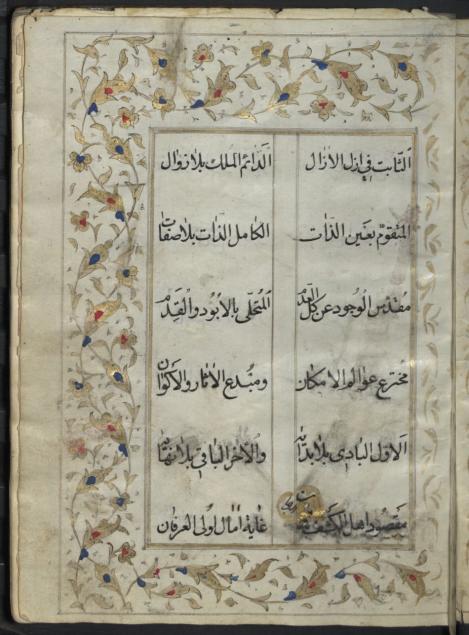 الثابت في ازل الازال الدائم الملك بلا زوال
المتقوم بعين الذات الكامل الذات بلا صفات
مقدس الوجود عن كل المتحلى بالابود والقدم
مخترع عوالم الامكان ومبدع الاثار والاكوان
الاول البادي بلا بداية والآخر الباقي بلا نهاية
مقصود اهل الكشف غاية امال اولى العرفان